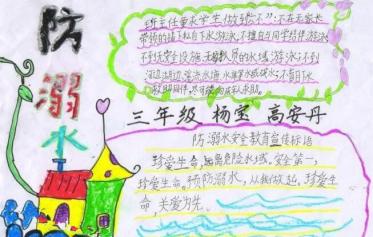 防溺水
班主任要求学生做到"六不":不在无家长
带领的情况下私自下水游泳;不擅自与同学结伴游泳;
不到无安全设施、无救援人员的水域游泳;不到
三年级 杨宝 高安丹
防溺水安全教育宣传标语
珍爱生命,远离危险水域。安全第一,
珍爱生命,预防溺水,从我做起,珍爱生
命,关爱为先。